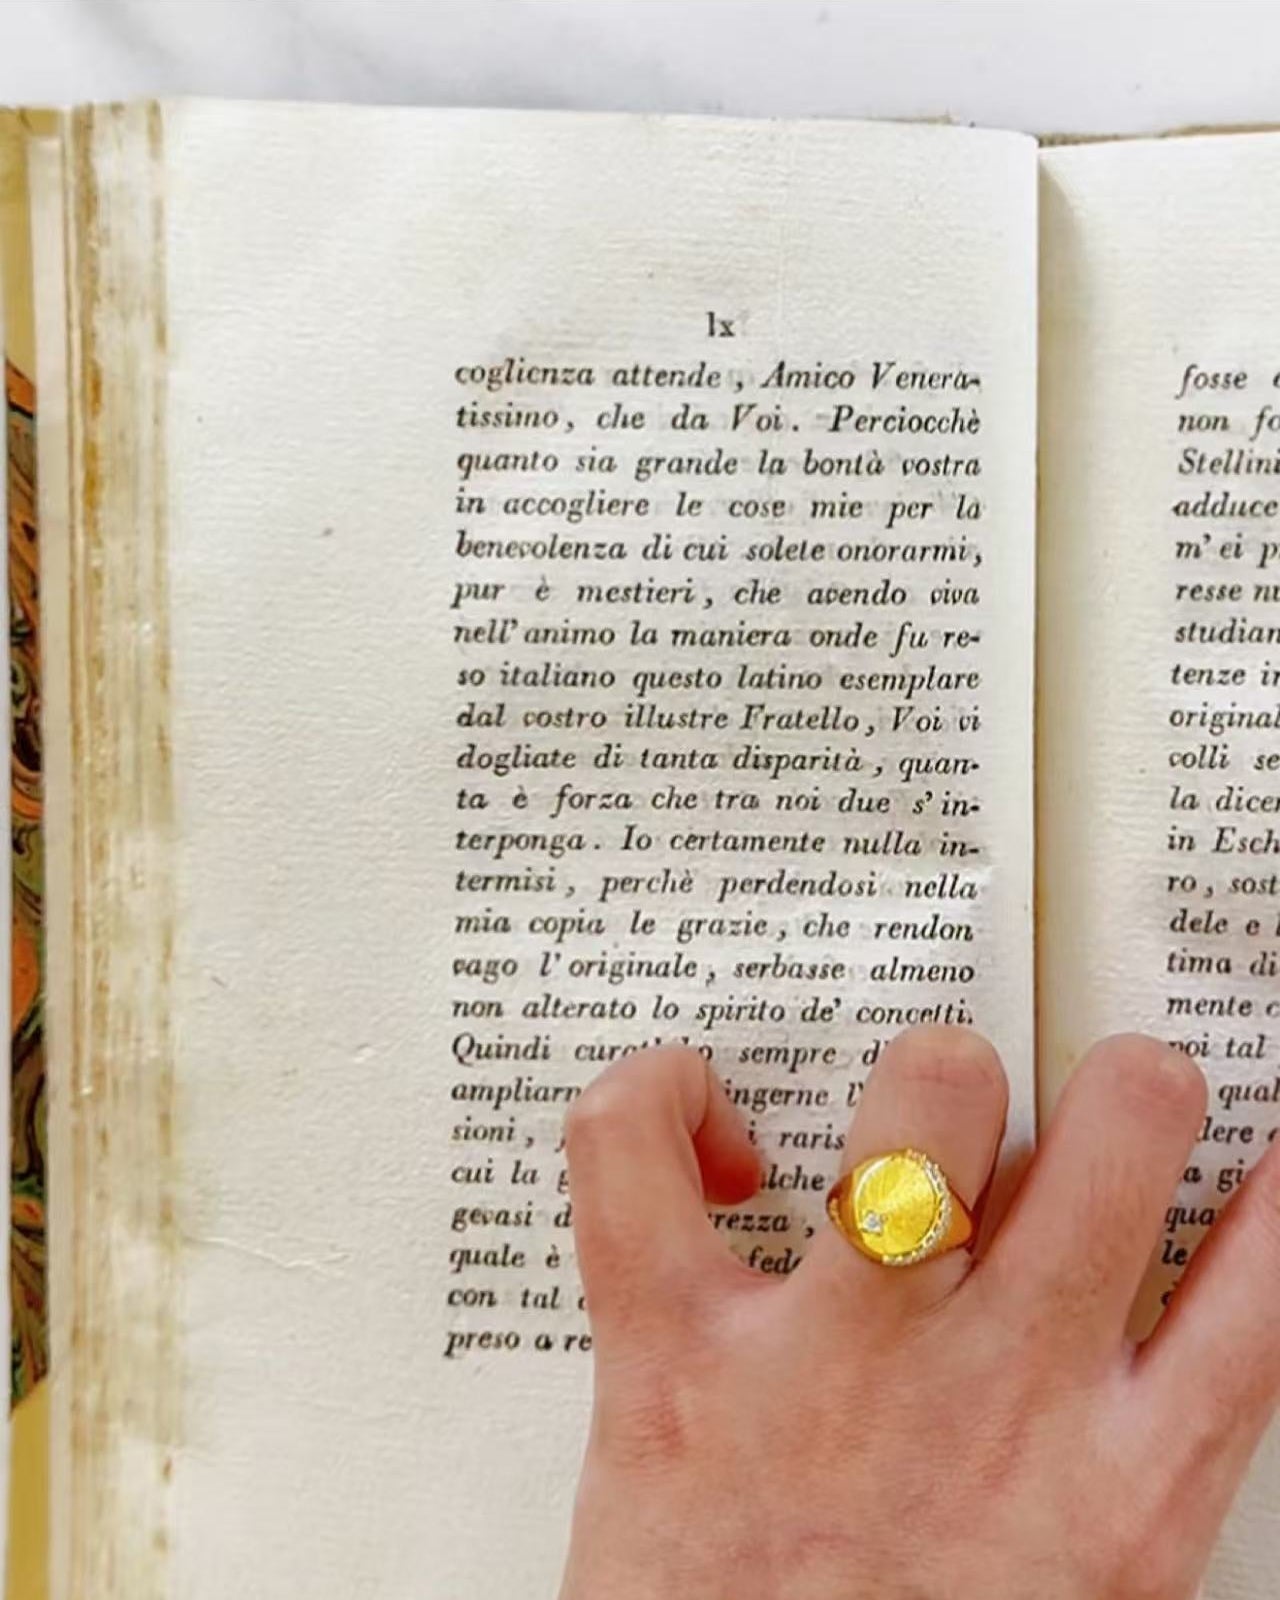 lx
coglienza attende , Amico Venera-
tissimo, che da Voi. Perciocchè
quanto sia grande la bontà vostra
in accogliere le cose mie per la
benevolenza di cui solete onorarmi,
pur è mestieri, che avendo viva
nell' animo la maniera onde fu re-
so italiano questo latino esemplare
dal vostro illustre Fratello, Voi vi
dogliate di tanta disparità , quan-
ta è forza che tra noi due s' in-
terponga. Io certamente nulla in-
termisi , perchè perdendosi nella
mia copia le grazie , che rendon
vago l' originale , serbasse almeno
non alterato lo spirito de' concetti.
Quindi sempre
ampliarn ingerne l'
sioni , raris
cui la
gevasi rezza ,
quale è
con tal
preso a re
fosse
non
Stellini
adduce
m' ei
resse
studian
tenze
original
colli se
la dicer
in Esch
ro, sost
dele e
tima di
mente
poi tal
qual
dere
gi
qua
le